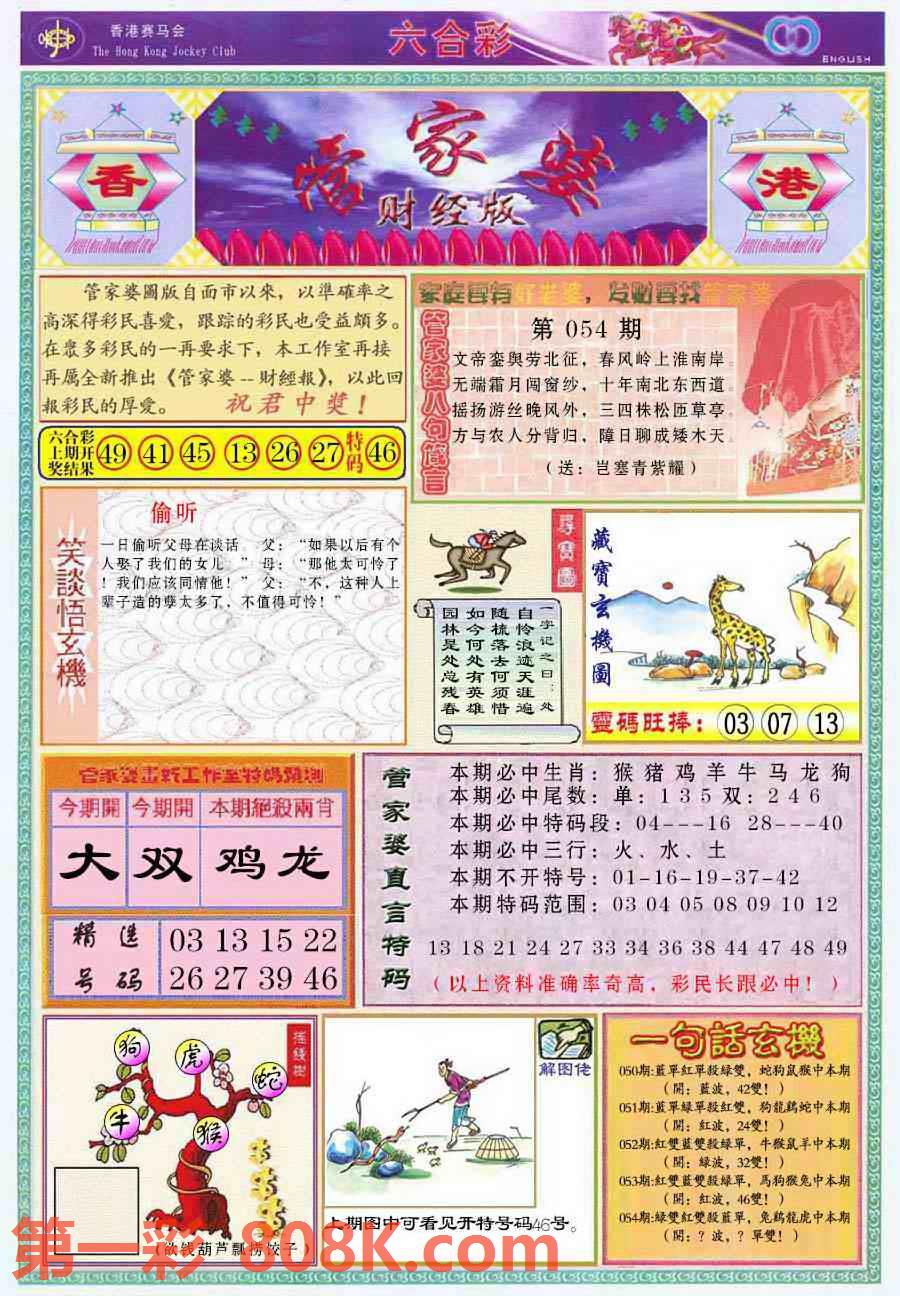 香港赛马会
The Hong Kong Jockey Club
六合彩
ENGLISH
香
管家婆
财经版
港
管家婆圖版自面市以來，以準確率之
高深得彩民喜愛，跟踪的彩民也受益頗多。
在眾多彩民的一再要求下，本工作室再接
再厲全新推出《管家婆--財經報》，以此回
報彩民的厚愛。 祝君中獎！
六合彩
上期开
奖结果
49 41 45 13 26 27 特码 46
家庭要有好老婆，发财要找管家婆
管家婆八句箴言
第 054 期
文帝銮舆劳北征，春风岭上淮南岸。
无端霜月闯窗纱，十年南北东西道。
摇扬游丝晚风外，三四株松匝草亭。
方与农人分背归，障日聊成矮木天。
（送：岂塞青紫耀）
笑談悟玄機
偷听
一日偷听父母在谈话。父：“如果以后有个
人娶了我们的女儿。”母：“那他太可怜了
！我们应该同情他！”父：“不，这种人上
辈子造的孽太多了，不值得可怜！”
尋寶圖
一字记之曰：处
自怜浪迹天涯遍
随梳落去何须惜
如今何处有英雄
园林是处总残春
藏寶玄機圖
靈碼旺捧：03 07 13
管家婆畫新工作室特碼預測
今期開 今期開 本期絕殺兩肖
大 双 鸡龙
精选
号码
03 13 15 22
26 27 39 46
管家婆直言特码
本期必中生肖：猴猪鸡羊牛马龙狗
本期必中尾数：单：1 3 5 双：2 4 6
本期必中特码段：04---16 28---40
本期必中三行：火、水、土
本期不开特号：01-16-19-37-42
本期特码范围：03 04 05 08 09 10 12
13 18 21 24 27 33 34 36 38 44 47 48 49
（以上资料准确率奇高，彩民长跟必中！）
摇錢樹
狗
虎
蛇
牛
猴
（欲钱葫芦瓢捞饺子）
解图佬
上期图中可看见开特号码46号。
一句話玄機
050期:藍單紅單殺綠雙，蛇狗鼠猴中本期
（開：藍波，42雙！）
051期:藍單綠單殺紅雙，狗龍鷄蛇中本期
（開：紅波，24雙！）
052期:紅雙藍雙殺綠單，牛猴鼠羊中本期
（開：綠波，32雙！）
053期:紅雙藍雙殺綠單，馬狗猴兔中本期
（開：紅波，46雙！）
054期:綠雙紅雙殺藍單，兔鷄龍虎中本期
（開：？波，？單雙！）
第一彩 808K.com